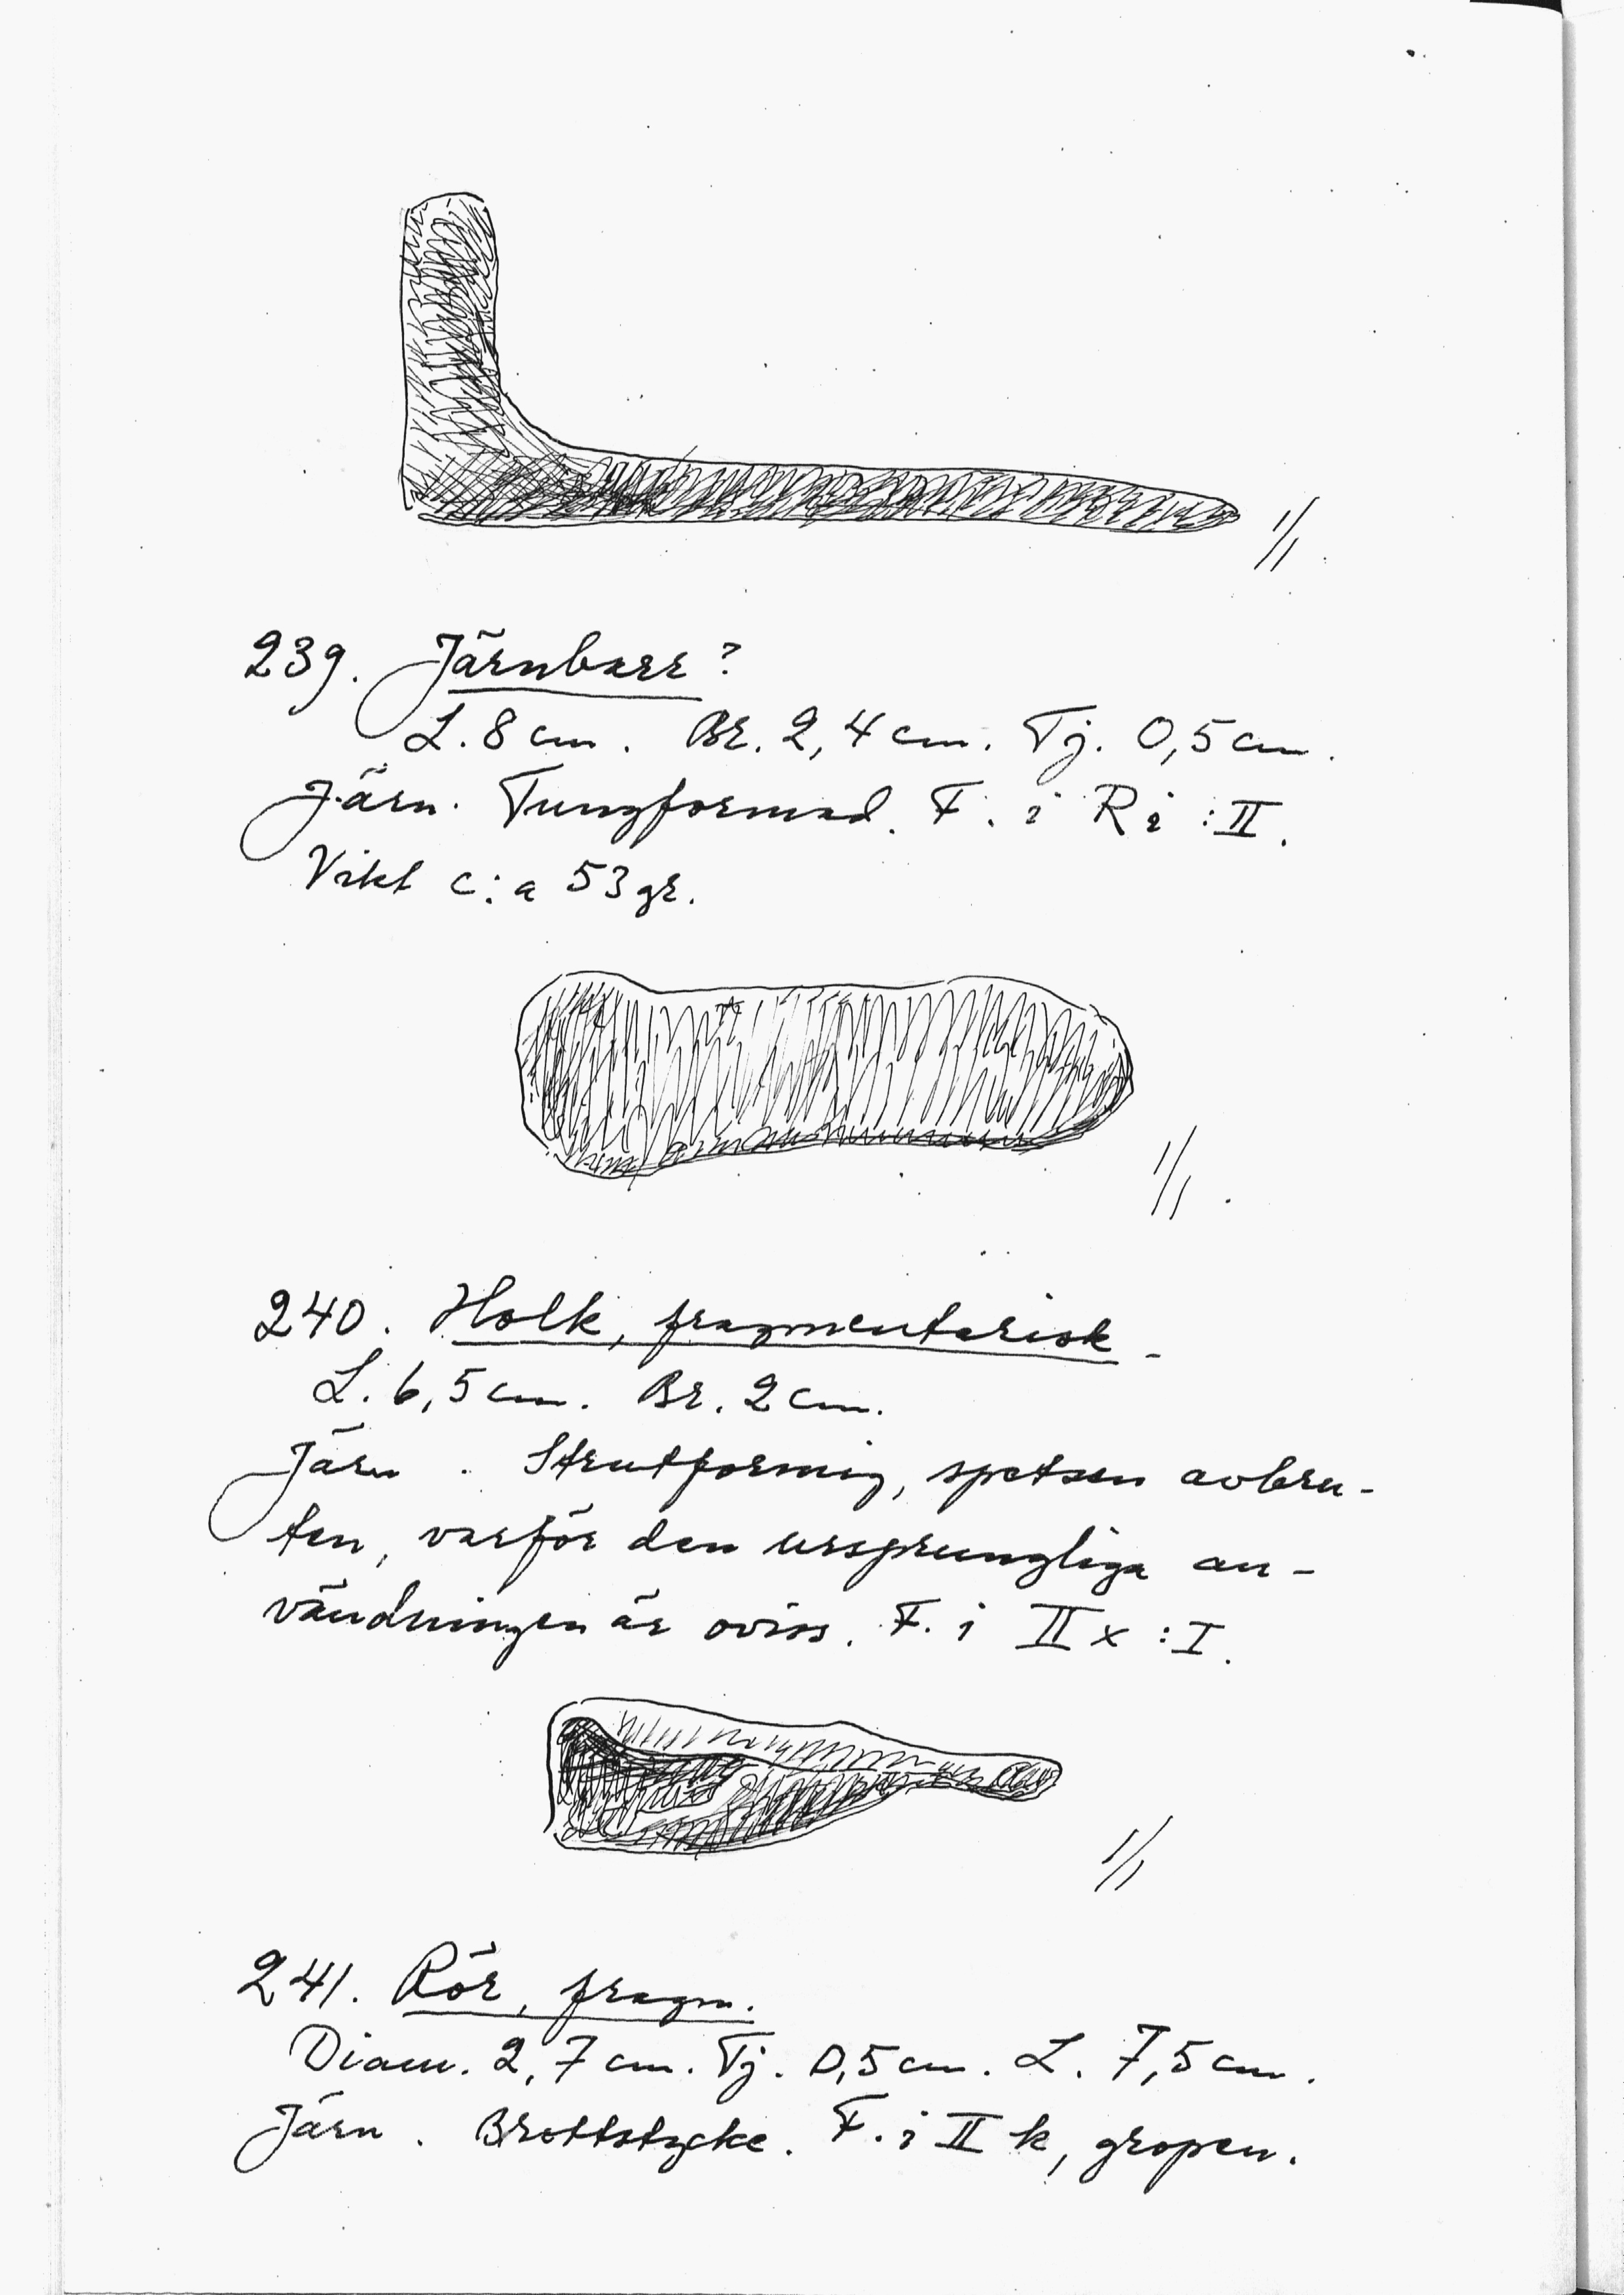 1/1.
239. Järnbarr?
L. 8 cm. Br. 2,4 cm. Tj. 0,5 cm.
Järn. Tungformad. F. i R i :II.
Vikt c:a 53 gr.
1/1.
240. Holk, fragmentarisk.
L. 6,5 cm. Br. 2 cm.
Järn. Strutformig, spetsen avbru-
ten, varför den ursprungliga an-
vändningen är oviss. F. i II x :I.
1/1
241. Rör, fragm.
Diam. 2,7 cm. Tj. 0,5 cm. L. 7,5 cm.
Järn. Brottstycke. F. i II k, gropen.